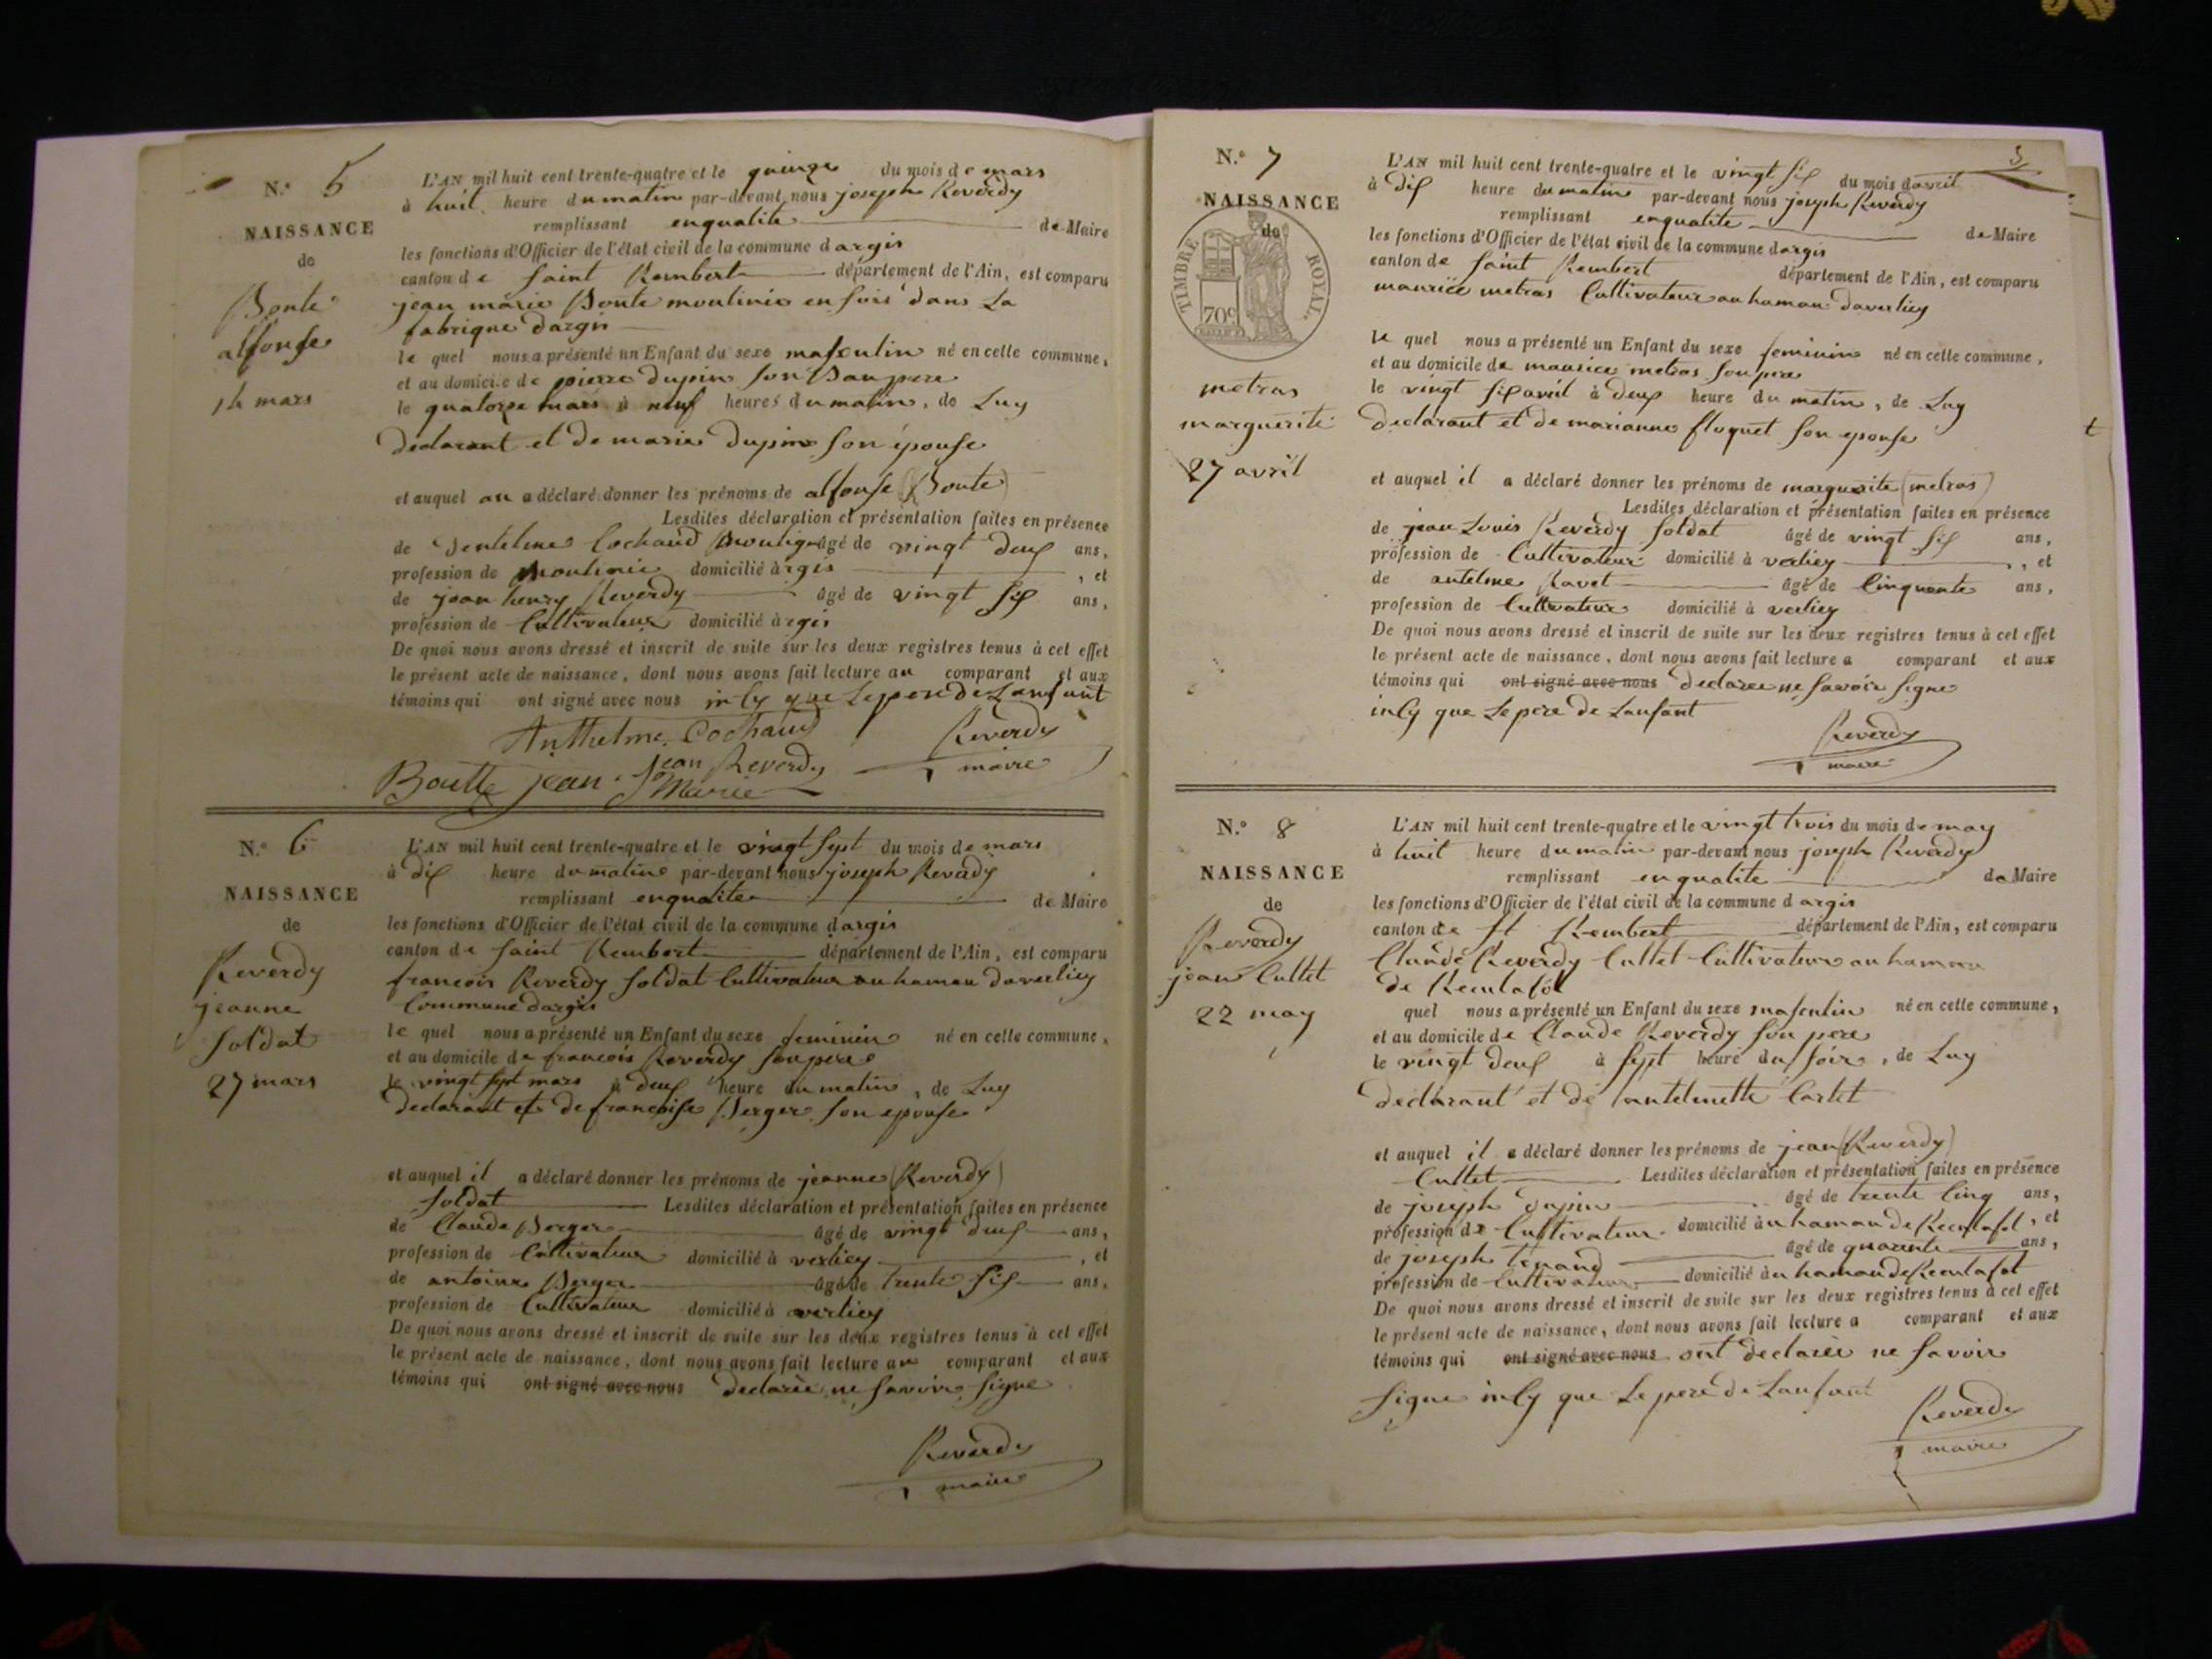 N.° 5
NAISSANCE
de
Bonte
alfonse
14 mars
L'AN mil huit cent trente-quatre et le quinze du mois de mars
à huit heure du matin par-devant nous joseph Reverdy
remplissant enqualite de Maire
les fonctions d'Officier de l'état civil de la commune dargis
canton de saint Rembert département de l'Ain, est comparu
jean marie Bonte moulinie en sois dans La
fabrique dargis
le quel nous a présenté un Enfant du sexe masculin né en celle commune,
et au domicile de pierre dupin son Baupere
le quatorze mars à neuf heures du matin, de Luy
declarant et de marie dupin son épouse
et auquel au a déclaré donner les prénoms de alfonse (Bonte)
Lesdites déclaration et présentation faites en présence
de Cochaud âgé de vingt deux ans,
profession de moulinie domicilié àrgis , et
de jean henry Reverdy âgé de vingt six ans,
profession de Cultivateur domicilié àrgis
De quoi nous avons dressé et inscrit de suite sur les deux registres tenus à cet effet
le présent acte de naissance, dont nous avons fait lecture au comparant et aux
témoins qui ont signé avec nous insy que Le pere de Lanfant
Anthelme Cochaud Reverdy
Boutte jean Marie jean Reverdy maire
N.° 6
NAISSANCE
de
Reverdy
jeanne
soldat
27 mars
L'AN mil huit cent trente-quatre et le vingt sept du mois de mars
à dix heure du matin par-devant nous joseph Reverdy
remplissant enqualite de Maire
les fonctions d'Officier de l'état civil de la commune dargis
canton de saint Rembert département de l'Ain, est comparu
francois Reverdy soldat Cultivateur au hamau daverliey
Commune dargis
le quel nous a présenté un Enfant du sexe feminin né en celle commune,
et au domicile de francois Reverdy son pere
le vingt sept mars à deux heure du matin, de Luy
declarant et de francoise Berger son epouse
et auquel il a déclaré donner les prénoms de jeanne (Reverdy)
soldat Lesdites déclaration et présentation faites en présence
de Claude Berger âgé de vingt deux ans,
profession de Cultivateur domicilié à verliey , et
de antoine Berger âgé de trente six ans,
profession de Cultivateur domicilié à verliey
De quoi nous avons dressé et inscrit de suite sur les deux registres tenus à cet effet
le présent acte de naissance, dont nous avons fait lecture au comparant et aux
témoins qui ont signé avec nous declarée ne savoir signe
Reverdy
maire
3
N.° 7
NAISSANCE
de
TIMBRE ROYAL.
70c
metras
marguerite
27 avril
L'AN mil huit cent trente-quatre et le vingt six du mois davril
à dix heure du matin par-devant nous joseph Reverdy
remplissant enqualite de Maire
les fonctions d'Officier de l'état civil de la commune dargis
canton de saint Rembert département de l'Ain, est comparu
maurice metras Cultivateur au hamau daverliey
le quel nous a présenté un Enfant du sexe feminin né en celle commune,
et au domicile de maurice metras son pere
le vingt six avril à deux heure du matin, de Luy
declarant et de marianne floquet son epouse
et auquel il a déclaré donner les prénoms de marguerite (metras)
Lesdites déclaration et présentation faites en présence
de jean Louis Reverdy soldat âgé de vingt six ans,
profession de Cultivateur domicilié à verliey , et
de antelme Ravet âgé de Cinquante ans,
profession de Cultivateur domicilié à verliey
De quoi nous avons dressé et inscrit de suite sur les deux registres tenus à cet effet
le présent acte de naissance, dont nous avons fait lecture a comparant et aux
témoins qui ont signé avec nous declaree ne savoir signe
insy que Le pere de Lanfant
Reverdy
maire
t
N.° 8
NAISSANCE
de
Reverdy
jean Cultet
22 may
L'AN mil huit cent trente-quatre et le vingt trois du mois de may
à huit heure du matin par-devant nous joseph Reverdy
remplissant enqualite de Maire
les fonctions d'Officier de l'état civil de la commune dargis
canton de st Rembert département de l'Ain, est comparu
Claude Reverdy Cultet Cultivateur au hamau
de Reculafol
quel nous a présenté un Enfant du sexe masculin né en celle commune,
et au domicile de Claude Reverdy son pere
le vingt deux à sept heure du soir, de Luy
declarant et de antelmette Cartet
et auquel il a déclaré donner les prénoms de jean (Reverdy)
Cultet Lesdites déclaration et présentation faites en présence
de joseph dupin âgé de trente Cinq ans,
profession de Cultivateur domicilié àu hamau de Reculafol, et
de joseph Tenand âgé de quarente ans,
profession de Cultivateur domicilié àu hamau de Reculafol
De quoi nous avons dressé et inscrit de suite sur les deux registres tenus à cet effet
le présent acte de naissance, dont nous avons fait lecture a comparant et aux
témoins qui ont signé avec nous ont declarée ne savoir
signe insy que Le pere de Lanfant
Reverdy
maire